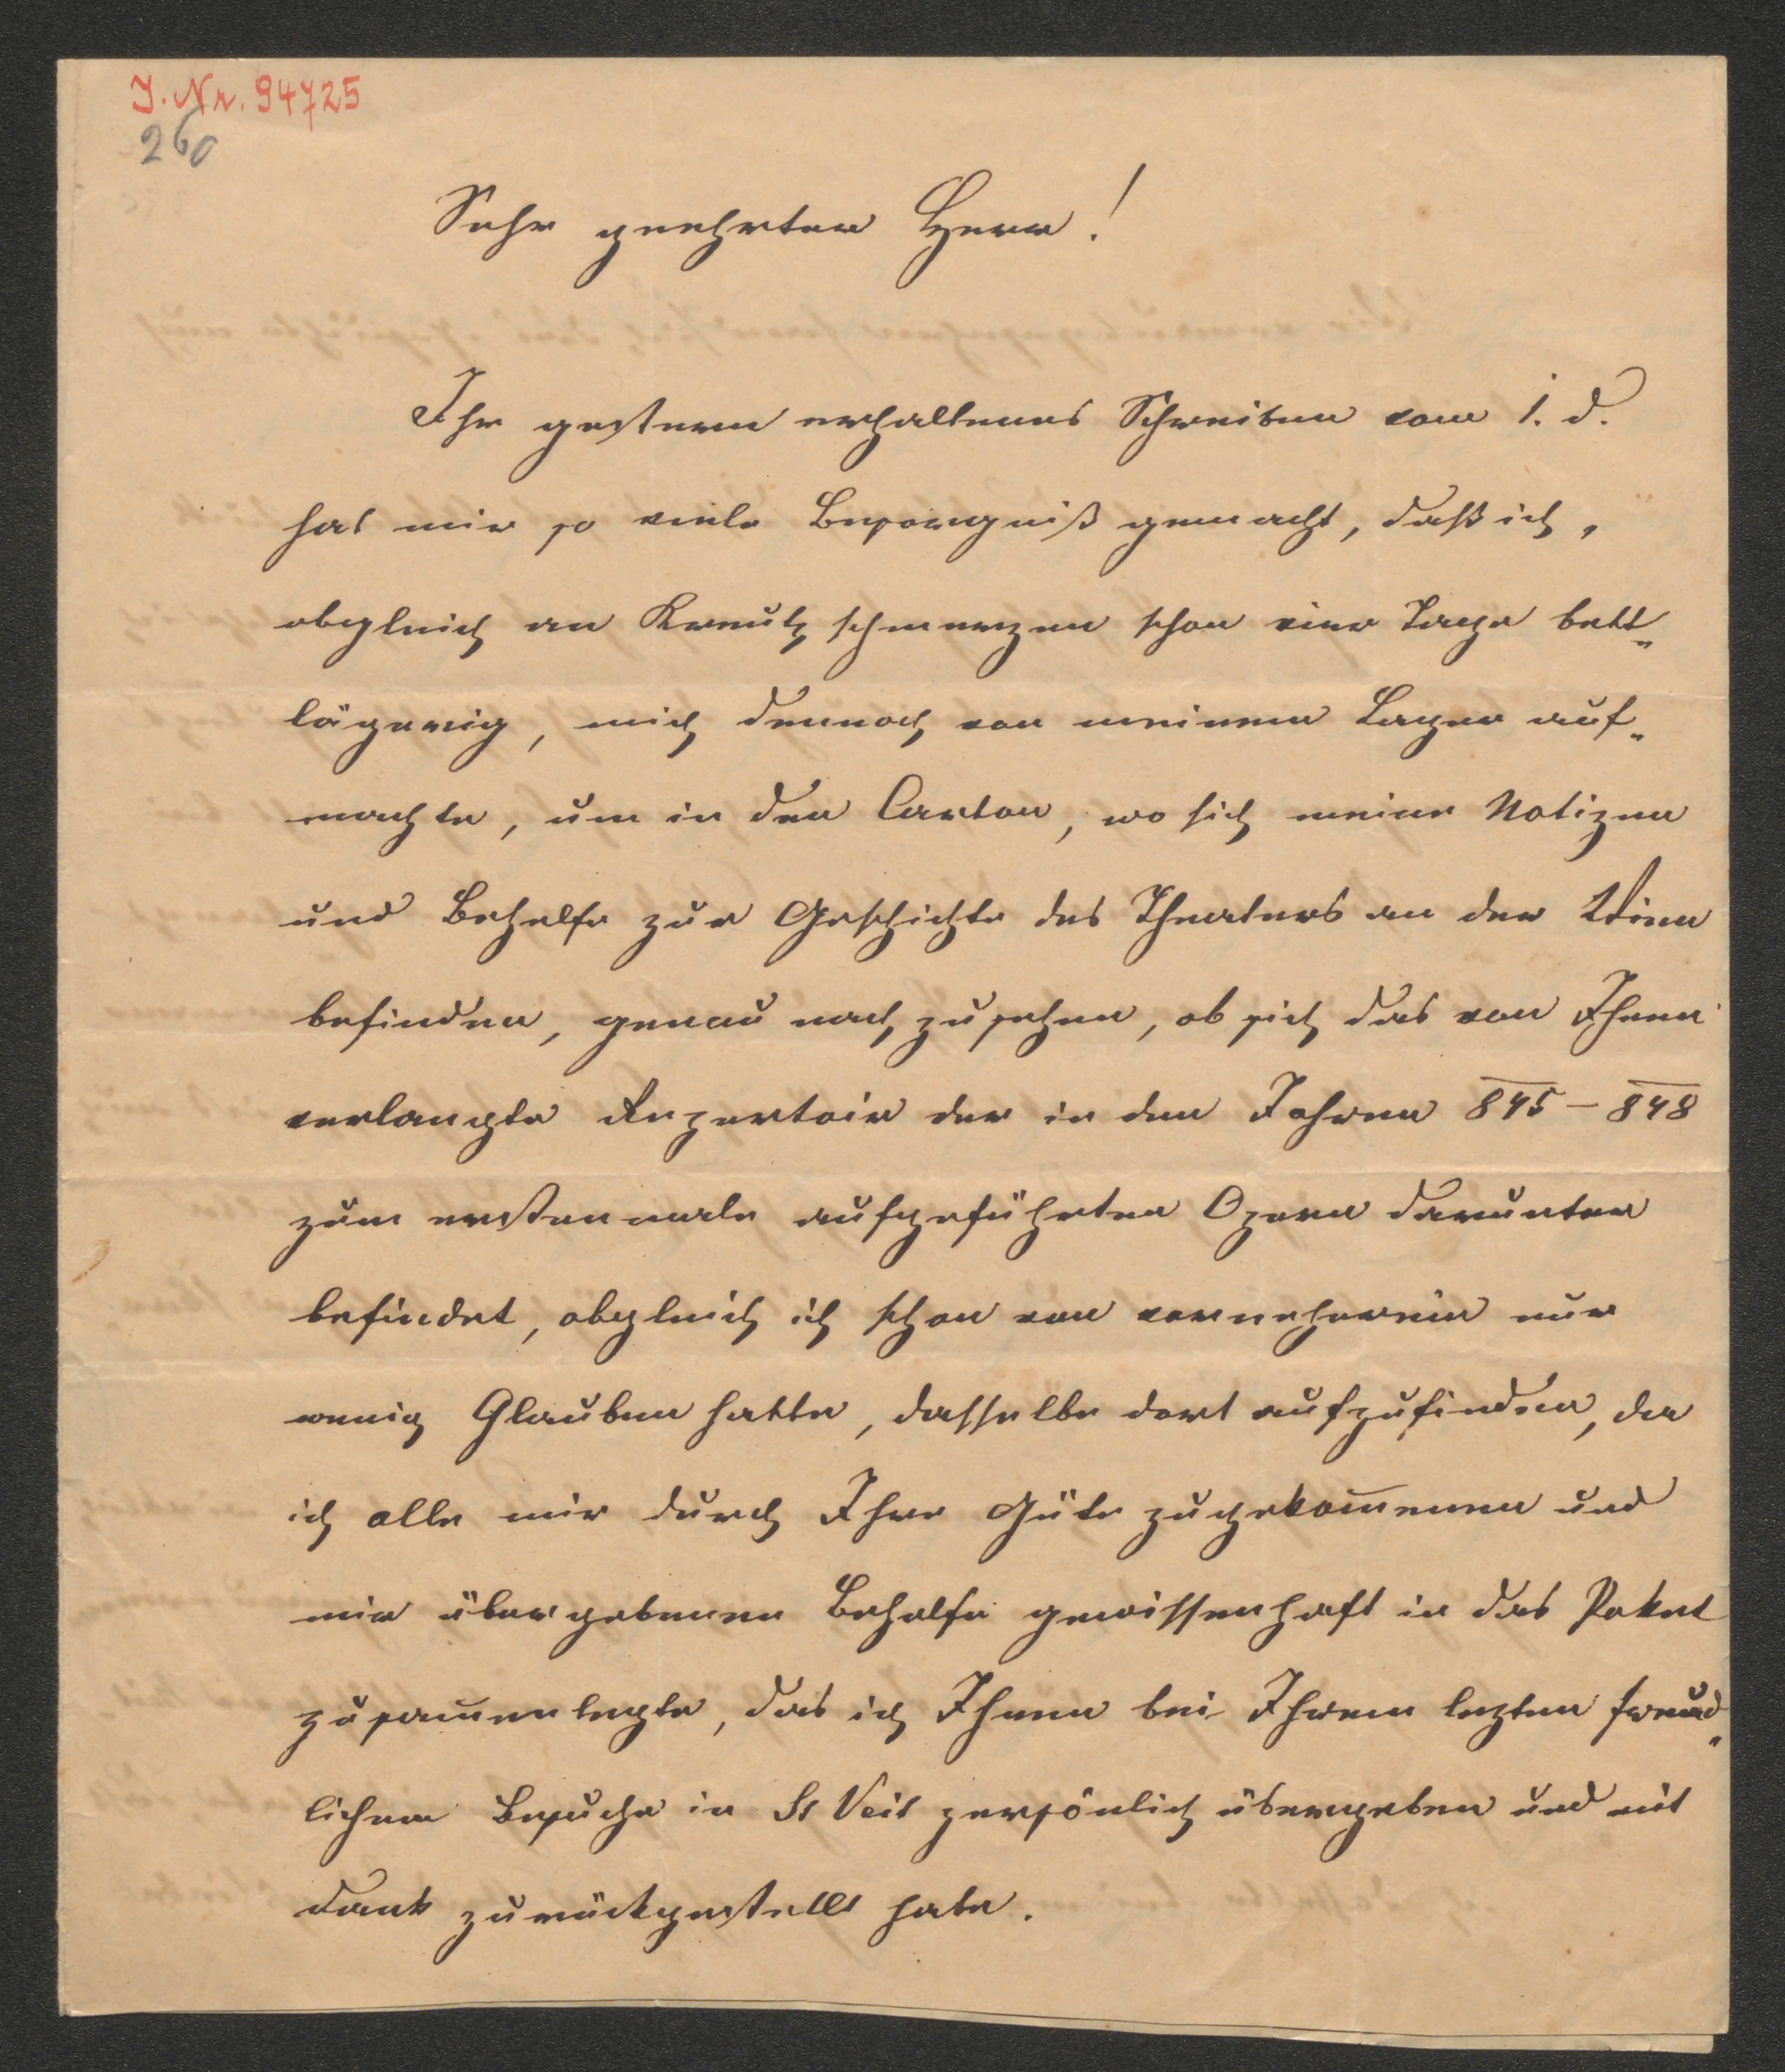 I. Nr. 94725
260
Sehr geehrter Herr!
Ihr gestern erhaltenes Schreiben vom 1. d.
hat mir so viele Besorgniß gemacht, daß ich,
obgleich an Kreutzschmerzen schon vier Tage bett„
lägerig, mich dennoch von meinem Lager auf„
machte, um in den Carton, wo sich meine Notizen
und Behelfe zur Geschichte des Theaters an der Wien
befinden, genau nachzusehen, ob sich das von Ihnen
verlangte Repertoir der in den Jahren 845–848
zum erstenmale aufgeführten Opern darunter
befindet, obgleich ich schon von vorneherein nur
wenig Glauben hatte, dasselbe dort aufzufinden, da
ich alle mir durch Ihre Güte zugekom̅enen und
mir übergebenen Behelfe gewissenhaft in das Paket
zusam̅enlegte, das ich Ihnen bei Ihrem lezten freund„
lichen Besuche in St Veit persönlich übergeben und mit
Dank zurückgestellt habe.